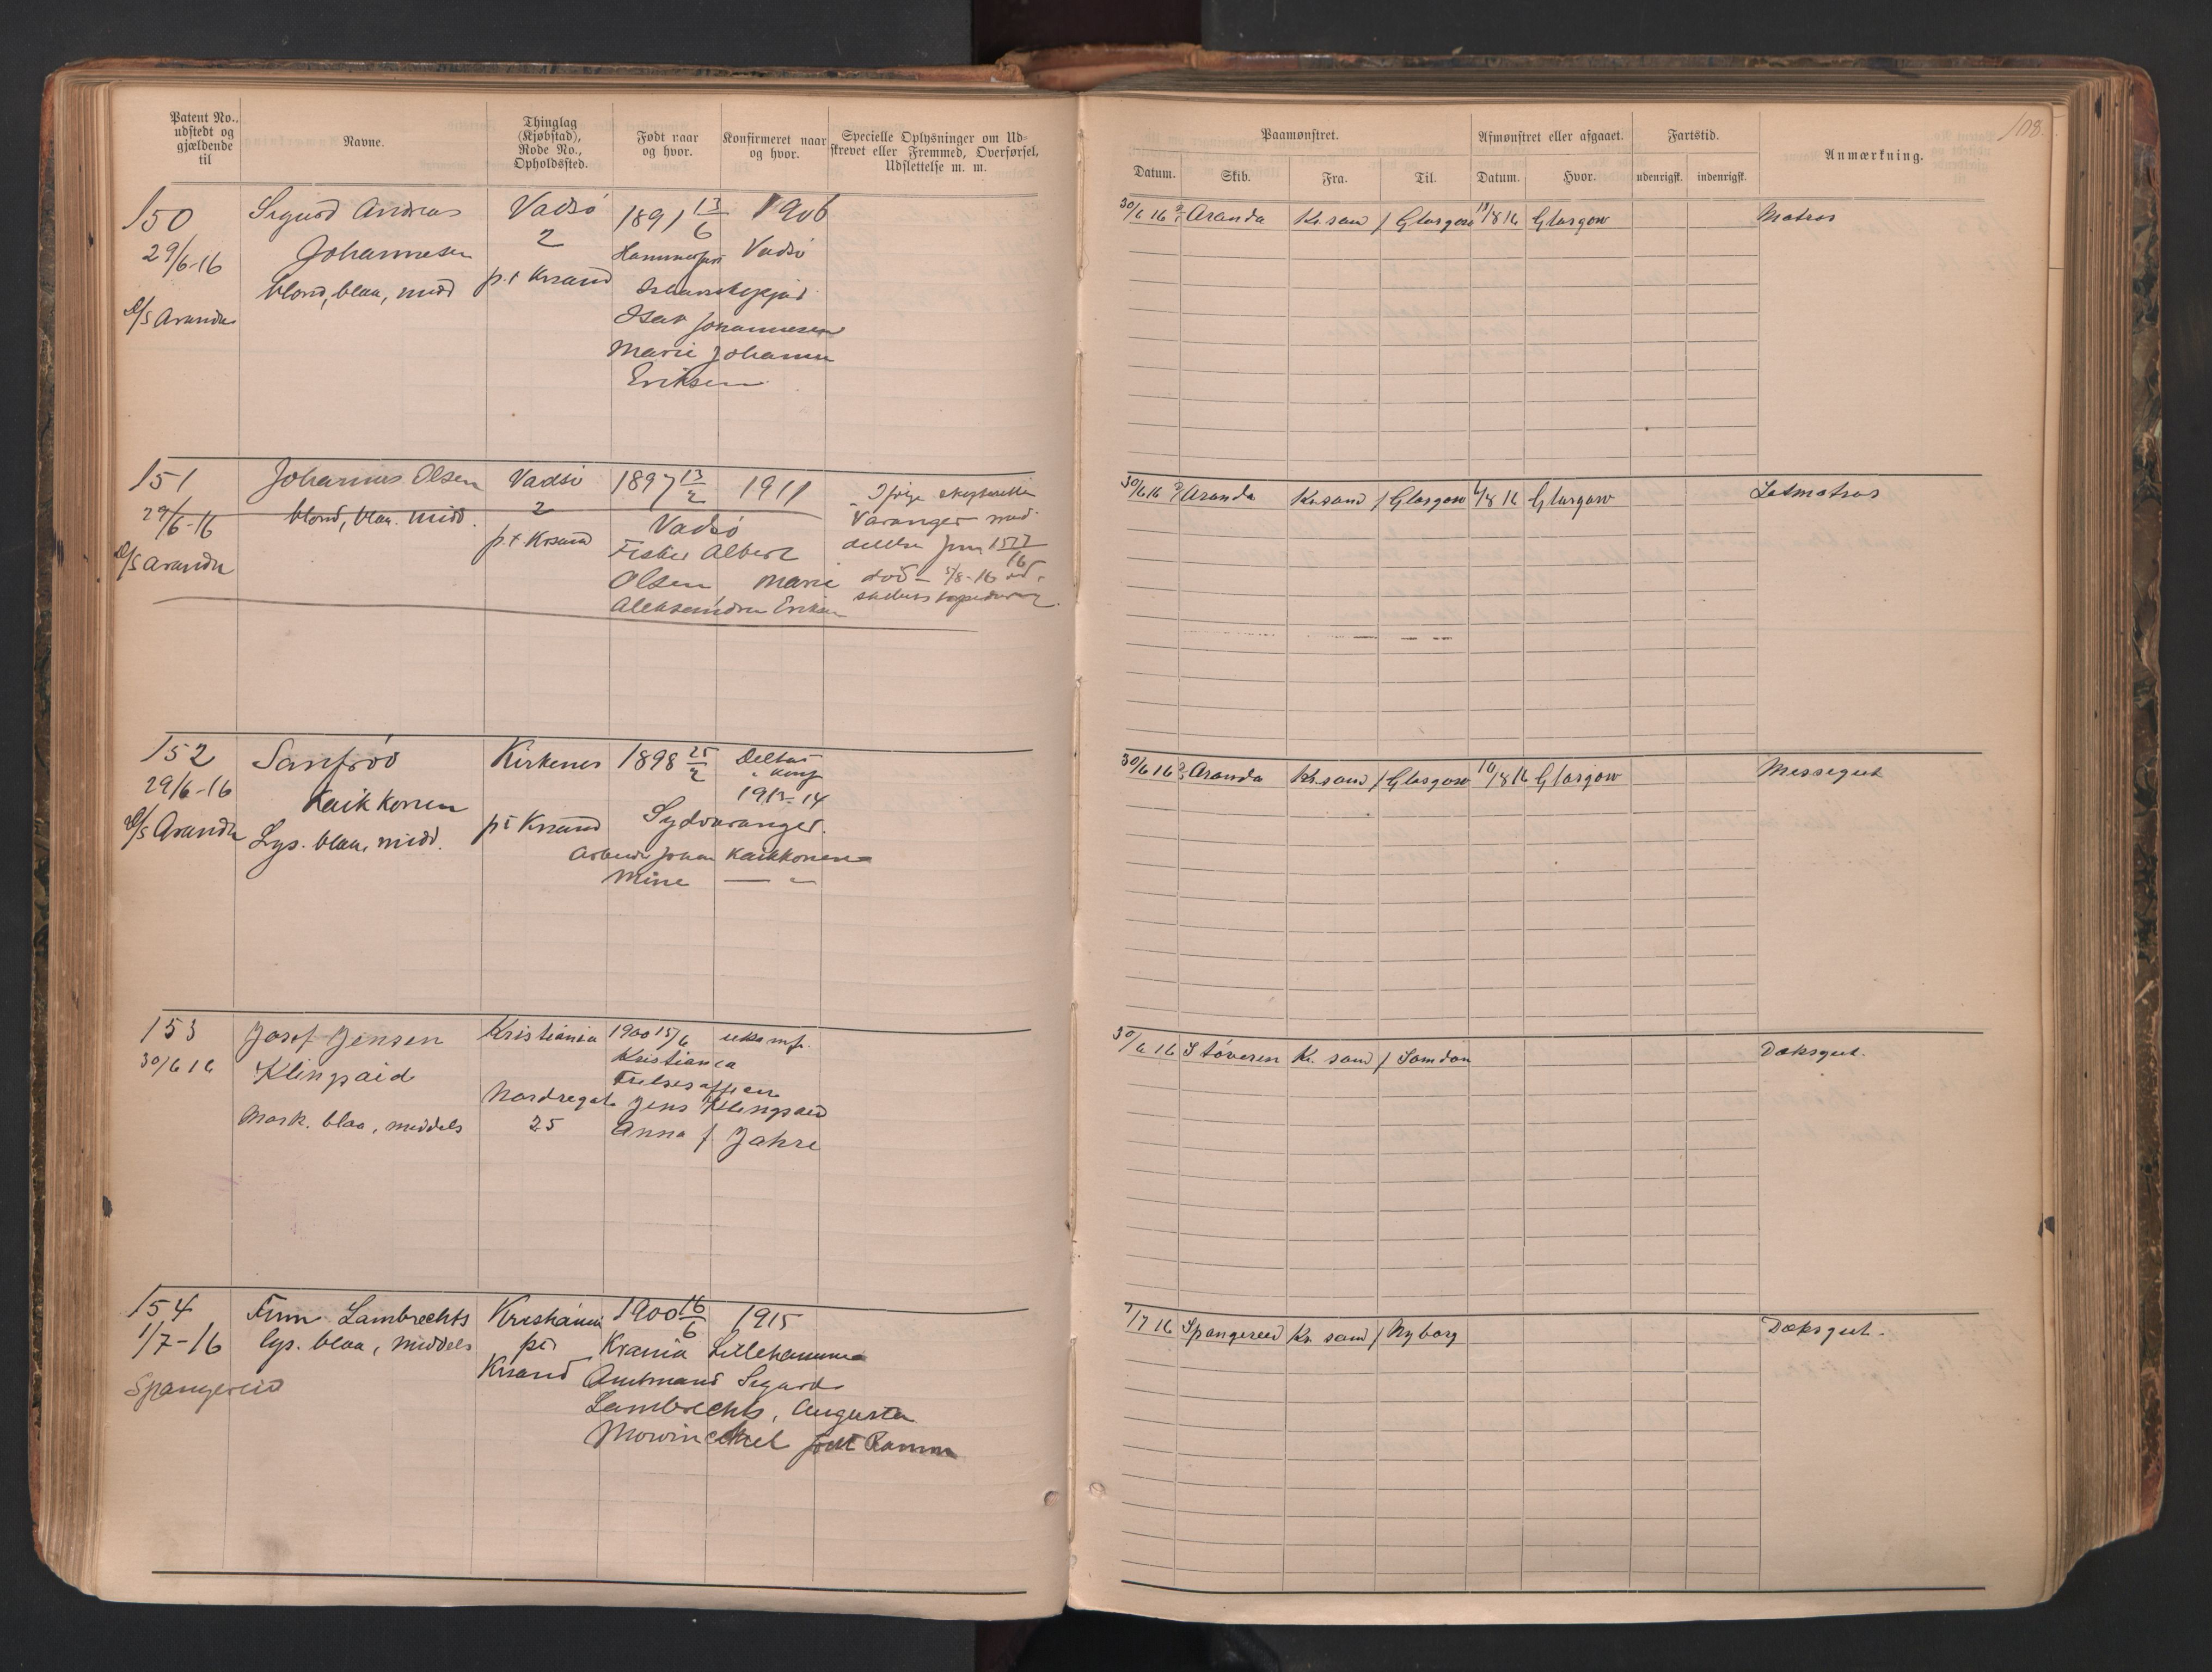 Patent No.,
udstedt og
gjældende
til
Navne.
Thinglag
(Kjøbstad),
Rode No.,
Opholdssted.
Født naar
og hvor.
Konfirmeret naar
og hvor.
Specielle Oplysninger om Ud-
skrevet eller Fremmed, Overførsel,
Udslettelse m. m.
150
29/6-16
D/S Aranda
Sigurd Andreas
Johannesen
blond, blaa, midd
Vadsø
2
p.t Krsand
1891 13/6
Hammerfest
Isak Johannesen
Marie Johanne
Eriksen
1906
Vadsø
151
29/6-16
D/S Aranda
Johannes Olsen
blond, blaa. midd.
Vadsø
2
p.t Krsand
1897 13/2
Vadsø
Fisker Albert
Olsen Marie
Aleksandra Eriksen
1911
Ifølge skifteretten
Varanger med-
delelse
død - 5/8-16 ved
skibets torpedering
152
29/6-16
D/S Aranda
Sanfrod
Kaikkonen
Lys. blaa, midd.
Kirkenes
pt Krsand
1898 25/2
Sydvaranger.
Arbeider Johan Kaikkonen
Mine — "
1913-14
153
30/6 16
Josef Jensen
Klingpaid
Mørk. blaa, middels
Kristiania
Nordregat
25
1900 15/6
Kristiania
Frelsesofficer
Jens Klingpaid
Anna f Jahre
ukonf.
154
1/7-16
Spangereid
Finn Lambrechts
lys. blaa, middels
Kristiania
pt
Krsand
1900 16/6
Krania
Amtmand Sigurd
Lambrechts, Augusta
Mowinckel født Ramm
1915
Lillehammer
108
Paamønstret.
Afmønstret eller afgaaet.
Fartstid.
Anmærkning.
Datum.
Skib.
Fra.
Til.
Datum.
Hvor.
udenrigsk.
indenrigsk.
30/6 16 Aranda Kr.sand / Glasgow 11/8 16 Glasgow Matros
30/6 16 Aranda Kr.sand / Glasgow 1/8 16 Glasgow Letmatros
30/6 16 Aranda Kr.sand / Glasgow 10/8 16 Glasgow Messegut
30/6 16 Støveren Kr. sand / London Dæksgut.
1/7 16 Spangereid Kr. sand / Nyborg Dæksgut.